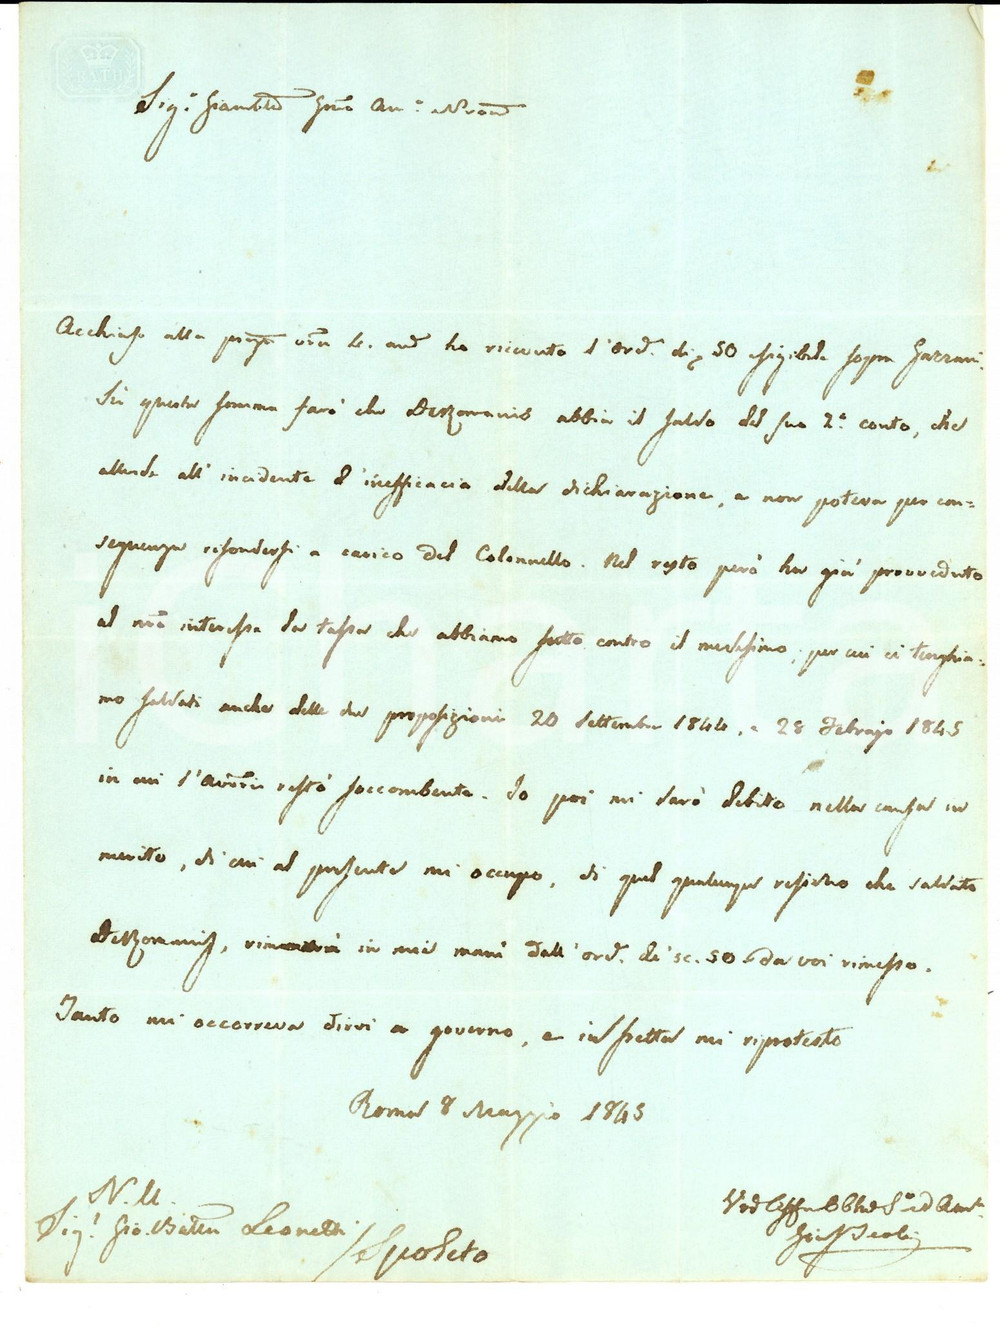 BATH
Sig.r Giambta Gmo Am.o
Acchiusa alla pregta vra ho ricevuto l'Ord. di 50 esigibile sopra Gazzani.
Su questa somma farò che DeRomanis abbia il saldo del suo 2.o conto, che
allude all'incidente d'inefficacia della dichiarazione, e non poteva per con=
seguenza rifondersi a carico del Colonnello. Nel resto però ha già provveduto
al nro interesse la tassa che abbiamo fatto contro il medesimo, per cui ci tenghia=
mo saldati anche delle due proposizioni 20 Settembre 1844, e 28 Febrajo 1845
in cui l'Avversrio restò soccombente. Io poi mi darò debito nella causa in
merito, di cui al presente mi occupo, di quel qualunque residuo che saldato
DeRomanis, rimarrà in mie mani dall'ord. di sc. 50 da voi rimesso.
Tanto mi occorreva dirvi a governo, e in fretta mi riprotesto
Roma 8 Maggio 1845
N. U.
Sig.r Gio. Batta Leonetti
/Spoleto
Vro Affmo Obbl S.e ed Am.o